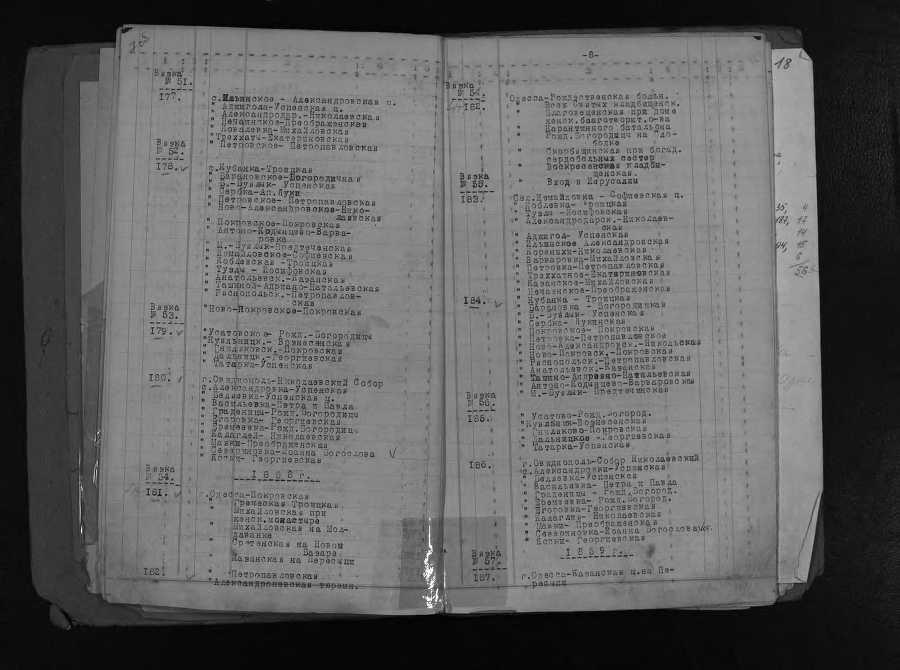 Вязка
№ 51.
177.
с.Ильинское - Александровская ц.
" Аджигола-Успенская ц.
" Александродар.-Николаевская
" Нечаянское-Преображенская
" Ковалевка-Михайловская
" Треххатн-Екатериновская
" Петровское- Петропавловская
Вязка
№ 52.
178.
с.Кубанка-Троицкая
" Барановское-Богородичная
" Б.-Буялык- Успенская
" Сербка-Ап.Луки
" Петровское- Петропавловская
" Ново-Александровское-Нико-
лаевская
" Покровское-Покровская
" Антоно-Кодынцево-Варва-
ровка
" М.-Буялык-Предтеченская
" Исмайловское-Софиевская
" Коблевская -Троицкая
" Тузлы - Иосифовская
" Анатольевск.-Казанская
" Ташино-Адриано-Натальевская
" Распопольск.-Петропавлов-
ская
Вязка
№ 53.
" Ново-Покровское-Покровская
179.
"Усатовское- Рожд.-Богородицы
"Куяльницк.- Вознесенская
" Гниляковск.-Покровская
" Дальницк.-Георгиевская
" Татарка-Успенская
180.
г.Овидиополь-Николаевский Собор
с.Александровка-Успенская
" Беляевка-Успенская ц.
" Васильевка-Петра и Павла
" Граденицы-Рожд.Богородицы
" Егоровка- Георгиевская
" Еремеевка-Рожд.Богородицы
" Калаглея- Николаевская
" Маяки-Преображенская
" Севериновка-Иоанна Богослова
" Ясски- Георгиевская
1868 г.
Вязка
№ 54.
181.
г.Одесса-Покровская
" Греческая Троицкая
" Михайловская при
женск.монастыре
" Михайловская на Мол-
даванке
" Сретенская на Новом
Базаре
" Казанская на Пересыпи
182.
" Петропавловская
" Александроневская тюремн.
-8-
Вязка
№ 54.
182.
Одесса-Рождественская больн.
" Всех Святых кладбищенск.
" Благовещенская при доме
женск.благотворит.о-ва
" Карантинного батальона
" Рожд.Богородицы на Сло-
бодке
" Скорбященская при богад.
сердобольных сестер
" Воскресенская кладби-
щенская.
" Вход в Иерусалим
Вязка
№ 55.
183.
Сел.Исмайловка - Софиевская ц.
" Коблевка- Троицкая
" Тузлы -Иосифовская
" Александродарск.-Николаев-
ская
" Аджигол- Успенская
" Ильинское Александровская
" Кореныхи-Николаевская
" Варваровка-Михайловская
" Петровка-Петропавловская
" Треххатное-Екатериновская
" Казанское-Михайловская
" Нечаянское-Преображенская
184.
" Кубанка - Троицкая
" Барановка - Богородицкая
" Б.-Буялык- Успенская
" Сербка- Лукинская
" Покровское- Покровская
" Петровка-Петропавловское
" Ново-Александровск.-Никольская
" Ново-Покровск.-Покровская
" Распопольск.-Петропавловская
" Анатольевск.-Казанская
" Ташино-Андреево-Натальевская
" Антоно-Кодинцево-Варваровская
" М.-Буялык- Предтечинская
Вязка
№ 56.
185.
" Усатово-Рожд.Богород.
"Куяльник-Вознесенская
" Гниляково-Покровская
" Дальницкое -Георгиевская
" Татарка-Успенская
186.
г.Овидиополь-Собор Николаевский
с.Александровки-Успенская
" Беляевка-Успенская
" Васильевка- Петра и Павла
" Граденицы - Рожд.Богород.
" Еремеевка- Рожд.Богород.
" Егоровка-Георгиевская
" Калаглия- Николаевская
" Маяки- Преображенская
" Севериновка-Иоанна Богослова
" Ясски- Георгиевская
1869 г.
Вязка
№ 57.
187.
г.Одесса-Казанская ц.на Пе-
ресыпи
18